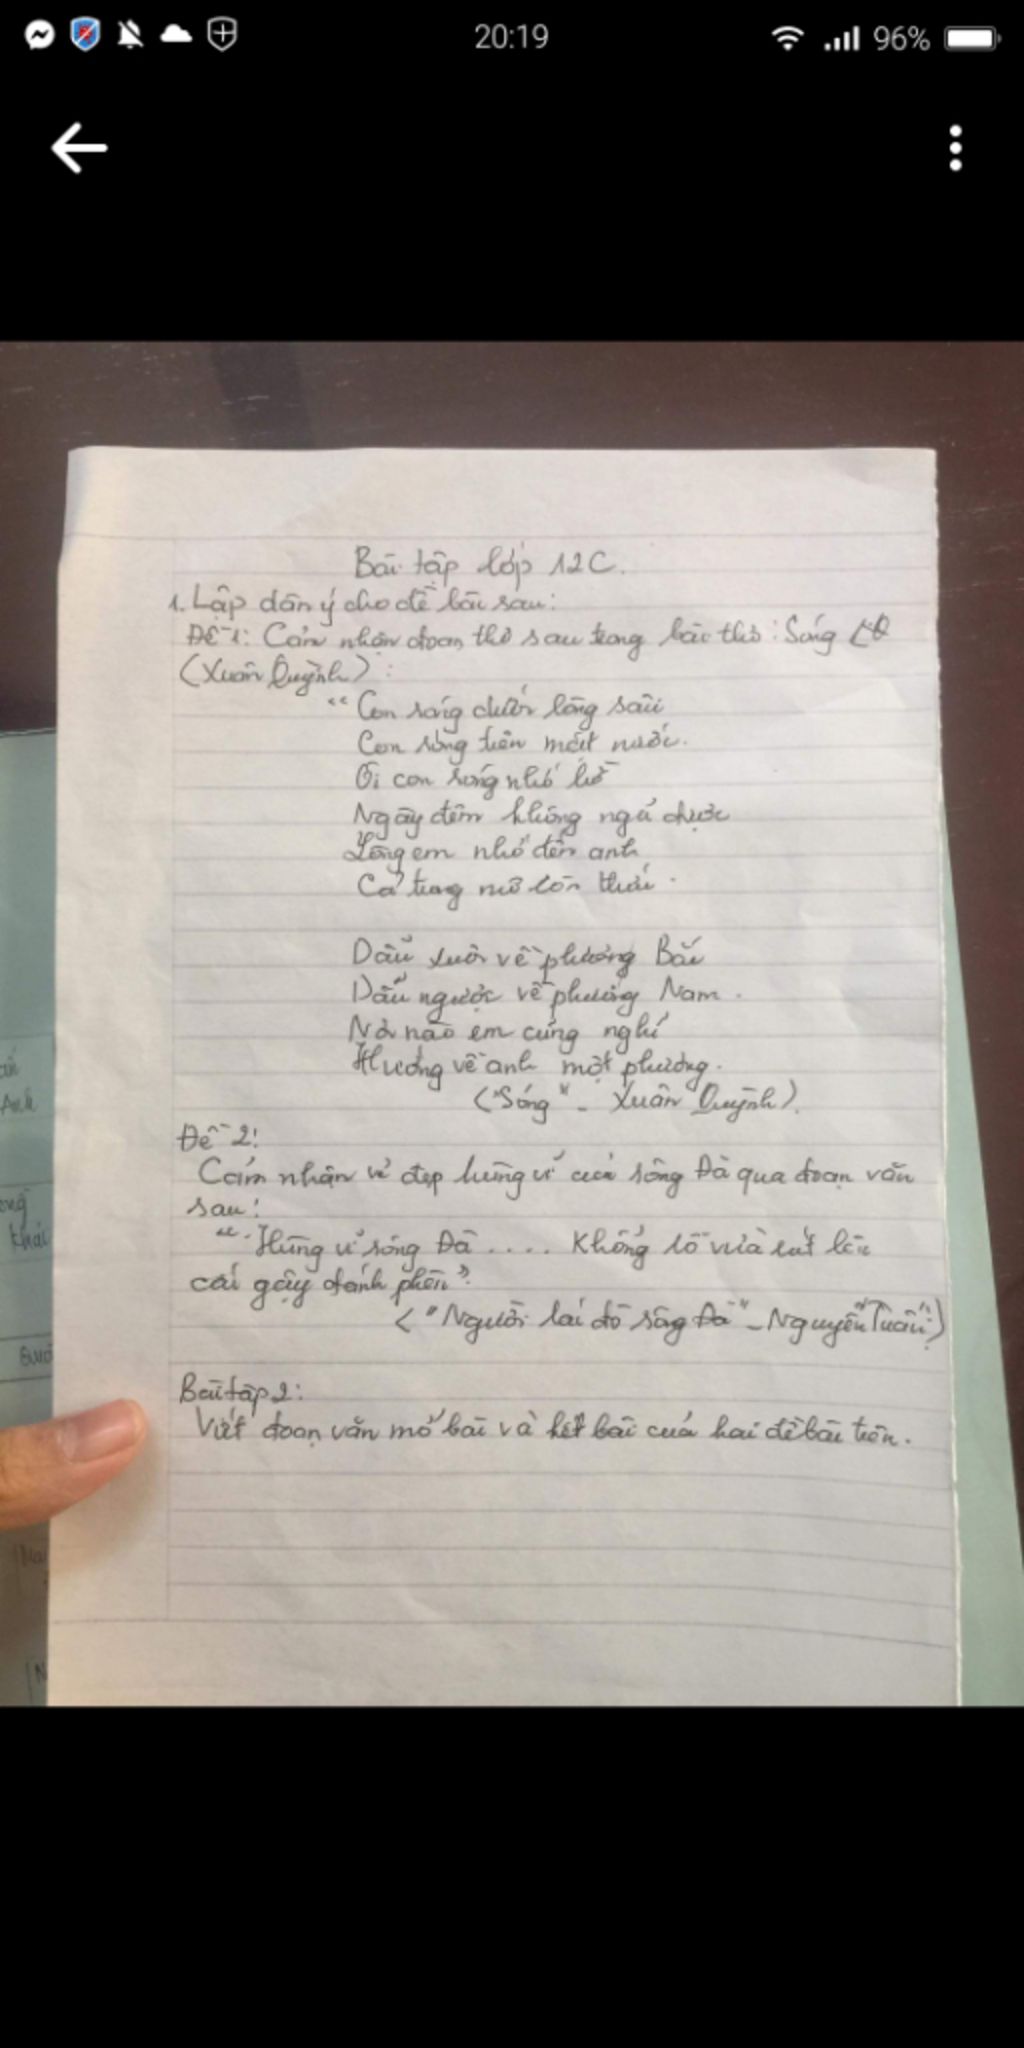 20:19
96%
Bài tập lớp 12C.
1. Lập dàn ý cho đề bài sau:
Đề 1: Cảm nhận đoạn thơ sau trong bài thơ: Sóng
(Xuân Quỳnh):
"Con sóng dưới lòng sâu
Con sóng trên mặt nước.
Ôi con sóng nhớ bờ
Ngày đêm không ngủ được
Lòng em nhớ đến anh
Cả trong mơ còn thức.
Dẫu xuôi về phương Bắc
Dẫu ngược về phương Nam.
Nơi nào em cũng nghĩ
Hướng về anh một phương.
("Sóng" - Xuân Quỳnh).
Đề 2:
Cảm nhận vẻ đẹp hùng vĩ của sông Đà qua đoạn văn
sau:
"Hùng vĩ sông Đà .... Khổng lồ vừa rút lên
cái gậy đánh phèn".
("Người lái đò sông Đà" - Nguyễn Tuân")
Bài tập 2:
Viết đoạn văn mở bài và kết bài của hai đề bài trên.
Anh
khái